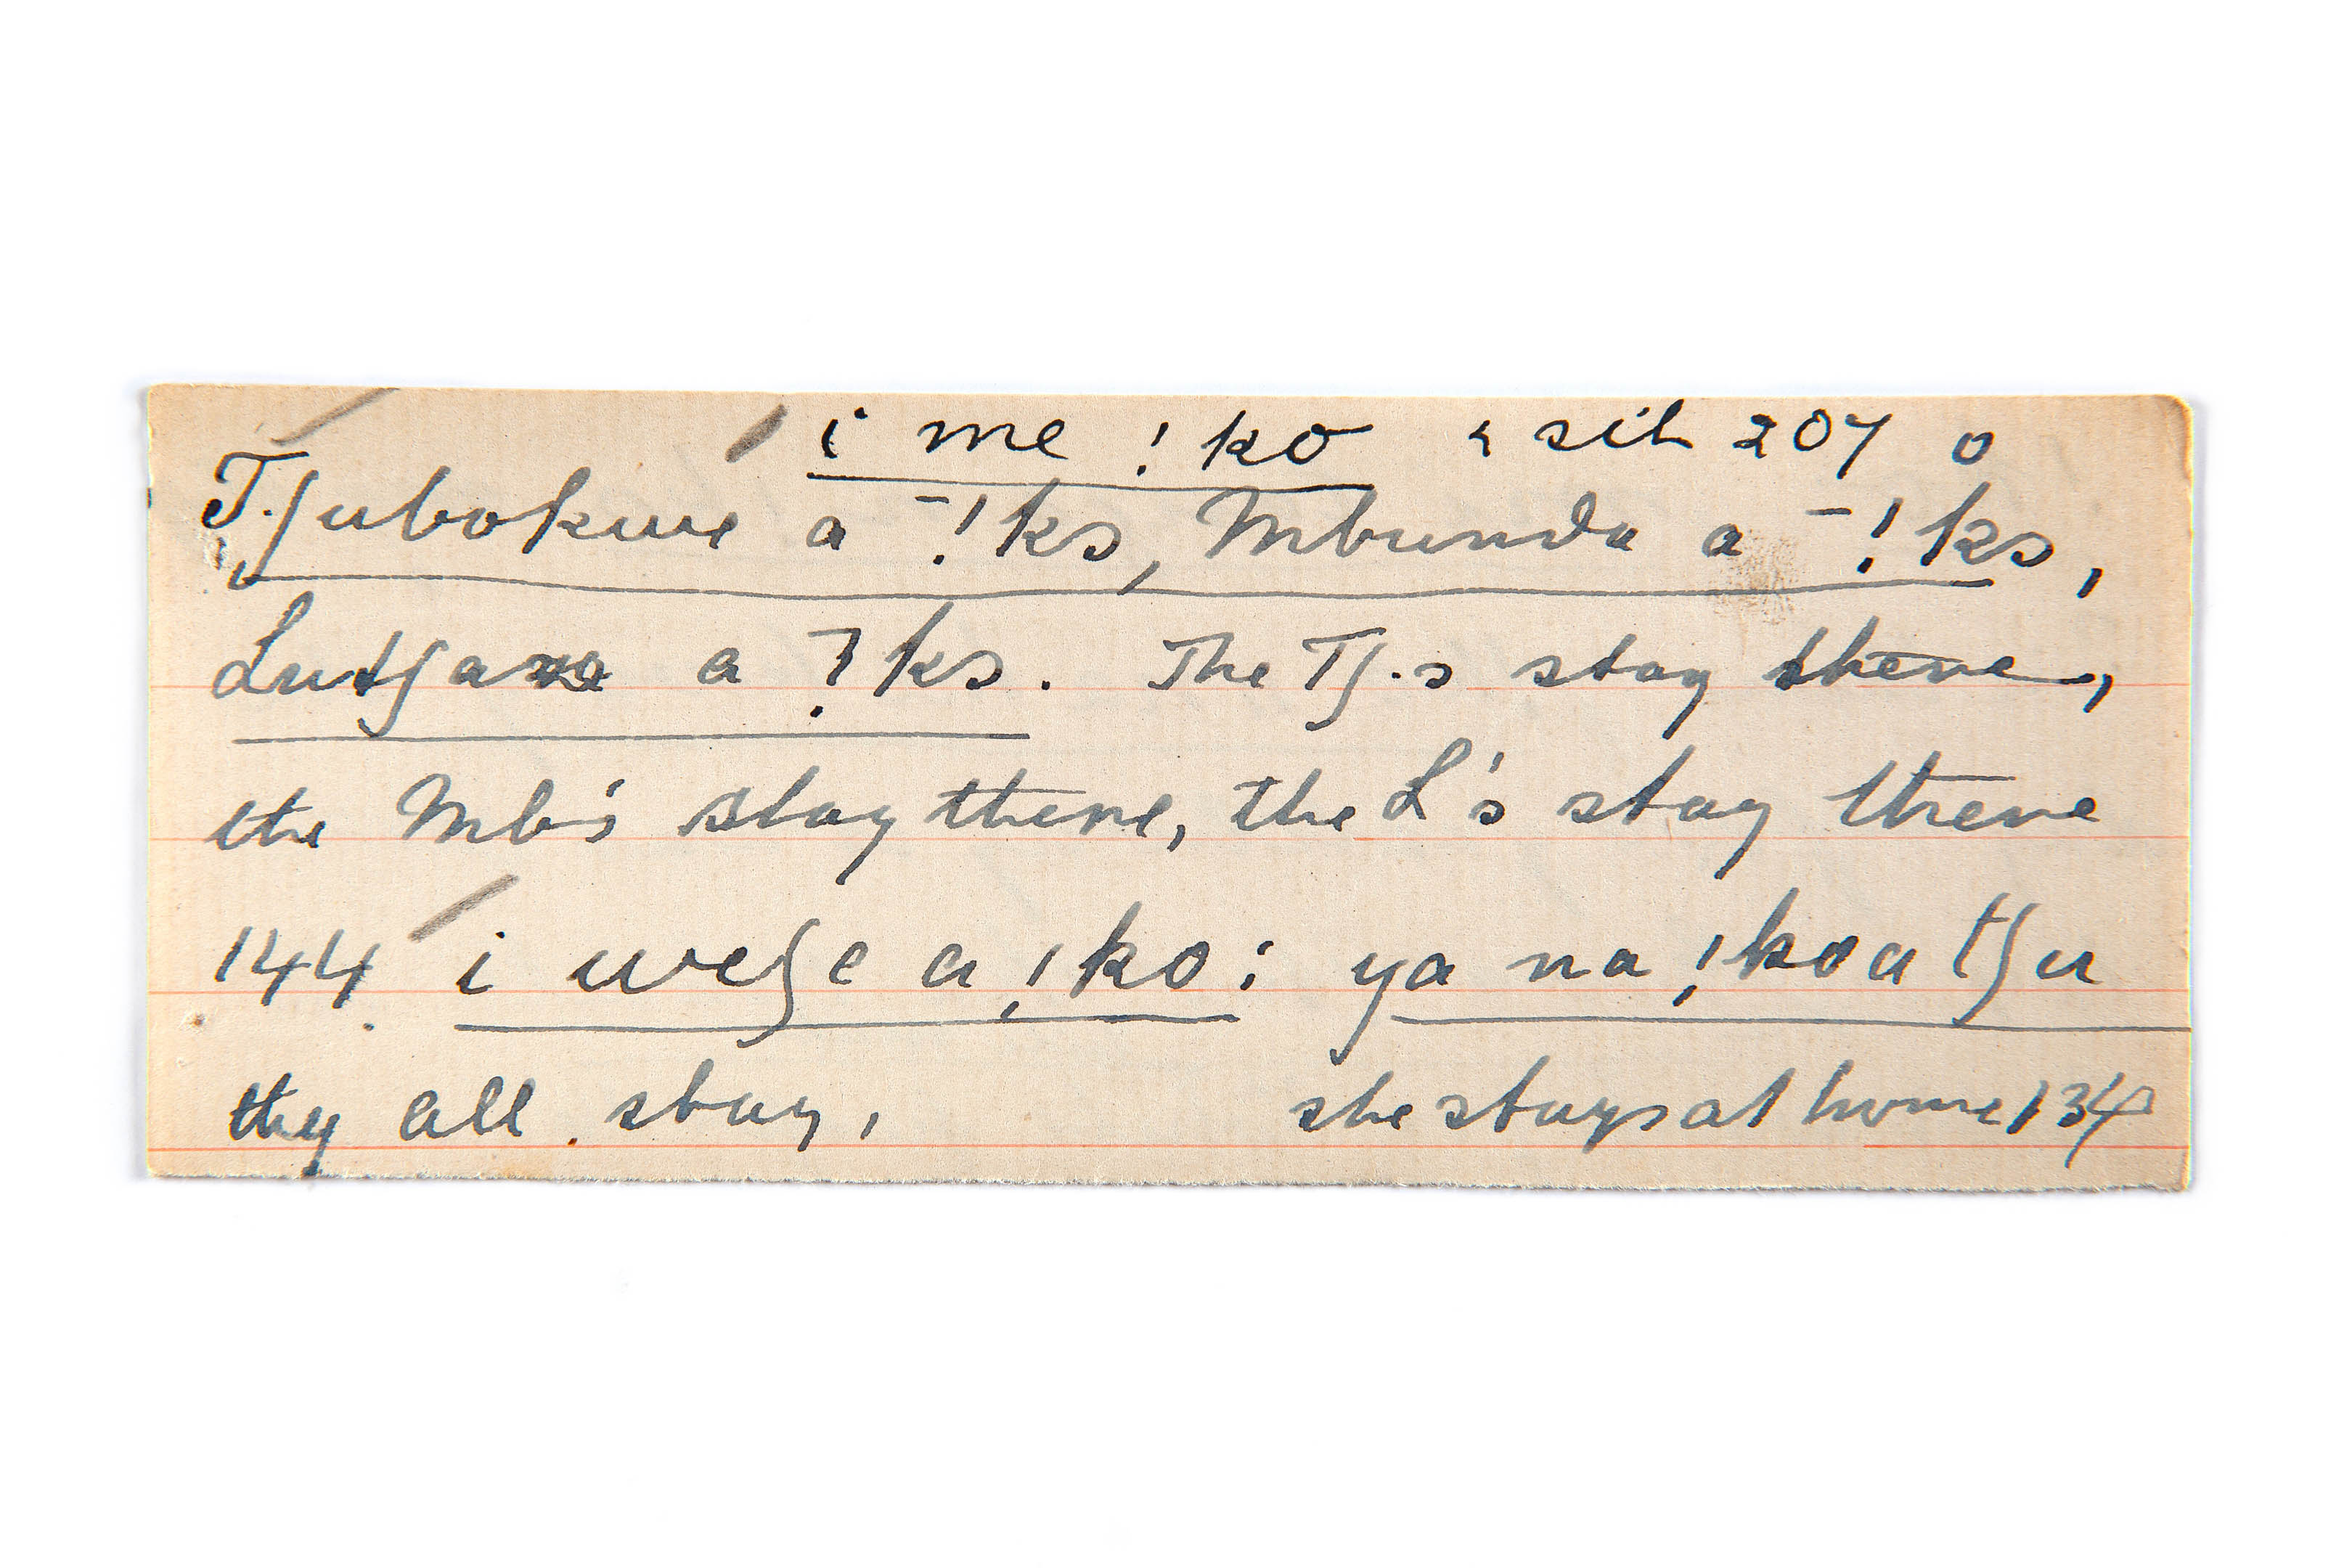 i me !ko sit 207 o
Tʃubokwe a ̄!ks, Mbunda a ̄!ks,
Lutʃaze a ̄!ks. The Tʃ.s stay there,
the Mb's stay there, the L's stay there
144. i weʃe a !ko; ya na !koa tʃu
they all stay, she stays at home 134